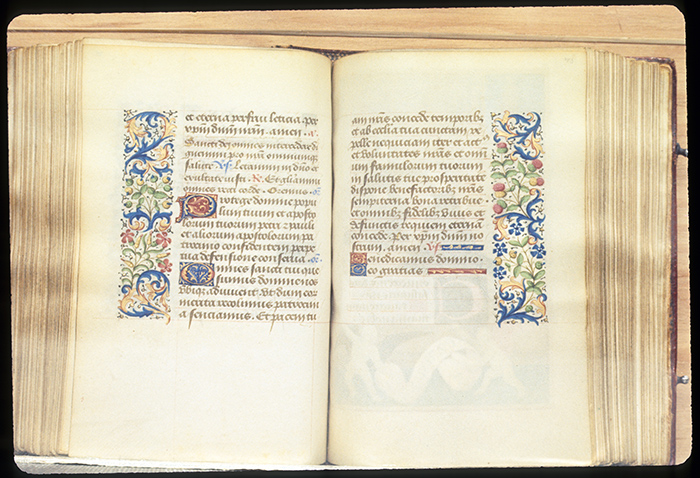 et eterna perfrui leticia. per
xp̄m dnm̄ nrm̄. amen. a.
Sancti dei omnes intercedere di
gnemini pro nrā omniumque
salute. Letamini in dn̄o et
exultate iusti.
omnes recti corde. Oremus. or̄.
Protege domine popu
lum tuum et aposto
lorum tuorum petri et pauli
et aliorum apostolorum pa
trocinio confidentem perpe
tua defensione conserua. or̄.
Omnes sancti tui que
sumus domine nos
ubique adiuuent. ut dum eor
merita recolimus patrocini
a sentiamus. Et pacem tu
am nrīs concede temporibꝫ
et ab ecclīa tua cunctam re
pelle nequiciam iter et act
et voluntates nrās et omni
um famulorum tuorum
in salutis tue prosperitate
dispone benefactoribꝫ nrīs
sempiterna bona retribue
et omnibꝫ fidelibꝫ viuis et
defunctis requiem eternā
concede. Per xp̄m dnm̄ no
strum. amen.
Benedicamus domino.
Deo gratias.